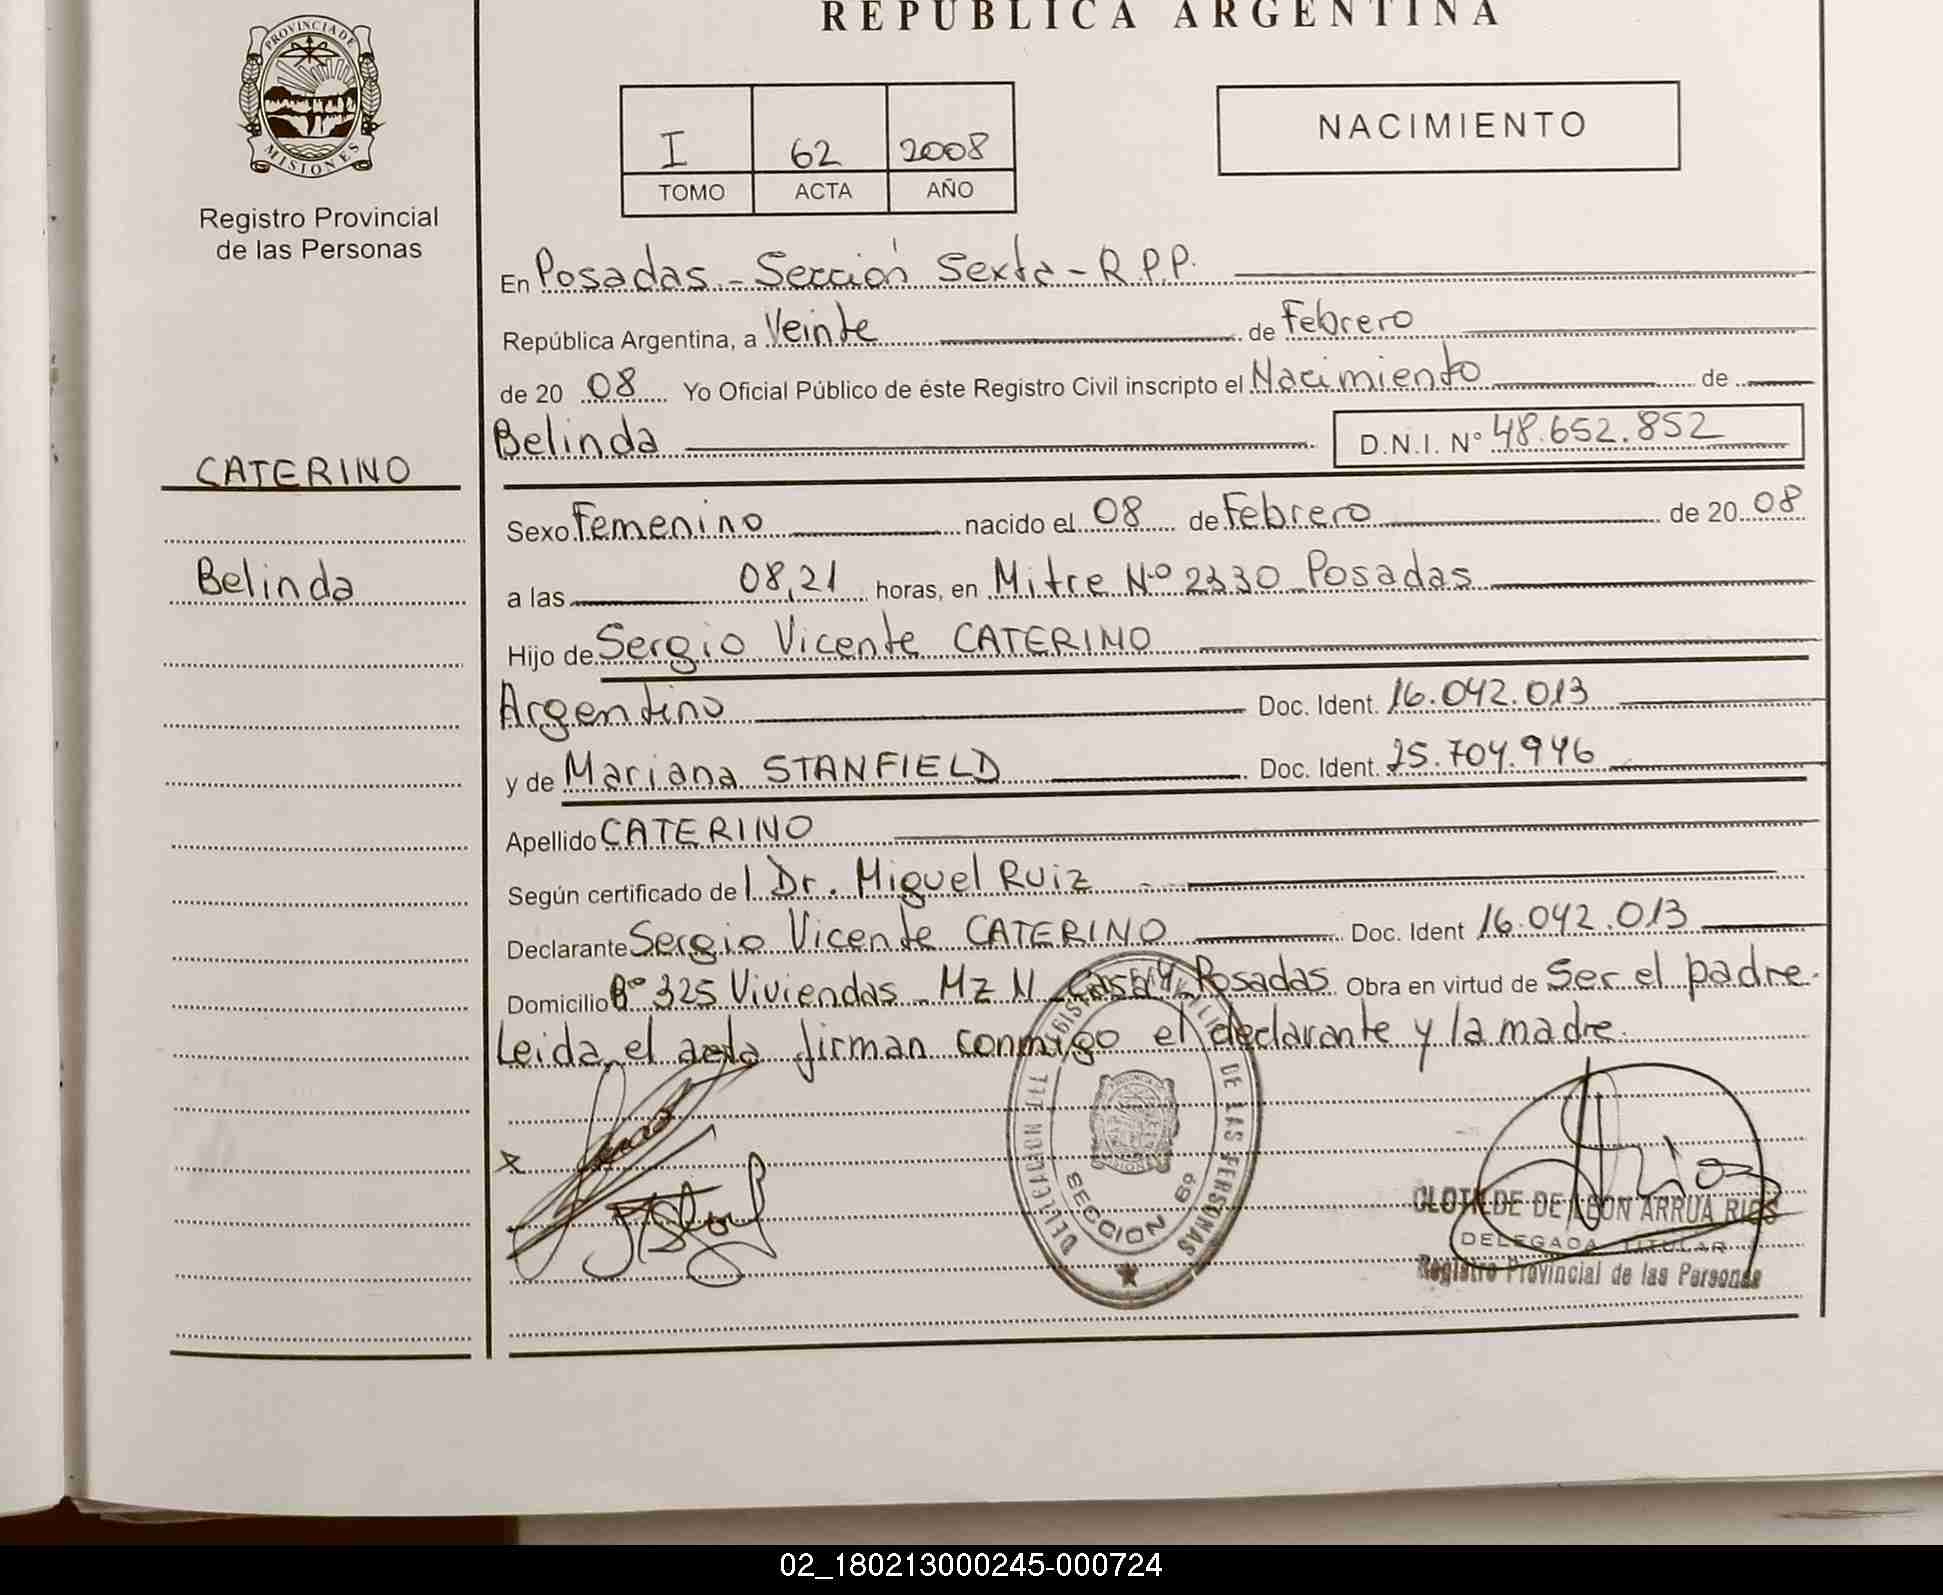 REPUBLICA ARGENTINA
PROVINCIA DE
MISIONES
Registro Provincial
de las Personas
I 62 2008
TOMO ACTA AÑO
NACIMIENTO
En Posadas - Sección Sexta - R.P.P.
República Argentina, a Veinte de Febrero
de 20 08 Yo Oficial Público de éste Registro Civil inscripto el Nacimiento de
Belinda D.N.I. Nº 48.652.852
CATERINO
Sexo Femenino nacido el 08 de Febrero de 20 08
Belinda
a las 08,21 horas, en Mitre Nº 2330 Posadas
Hijo de Sergio Vicente CATERINO
Argentino Doc. Ident. 16.042.013
y de Mariana STANFIELD Doc. Ident. 25.704.946
Apellido CATERINO
Según certificado de l Dr. Miguel Ruiz
Declarante Sergio Vicente CATERINO Doc. Ident 16.042.013
Domicilio Bº 325 Viviendas Mz N Casa 4 Posadas Obra en virtud de Ser el padre.
Leida el acta firman conmigo el declarante y la madre.
DELEGACION DEL REGISTRO DE LAS PERSONAS
SECCION 6º
CLOTILDE DE LEON ARRUA RIOS
DELEGADA TITULAR
Registro Provincial de las Personas
02_180213000245-000724